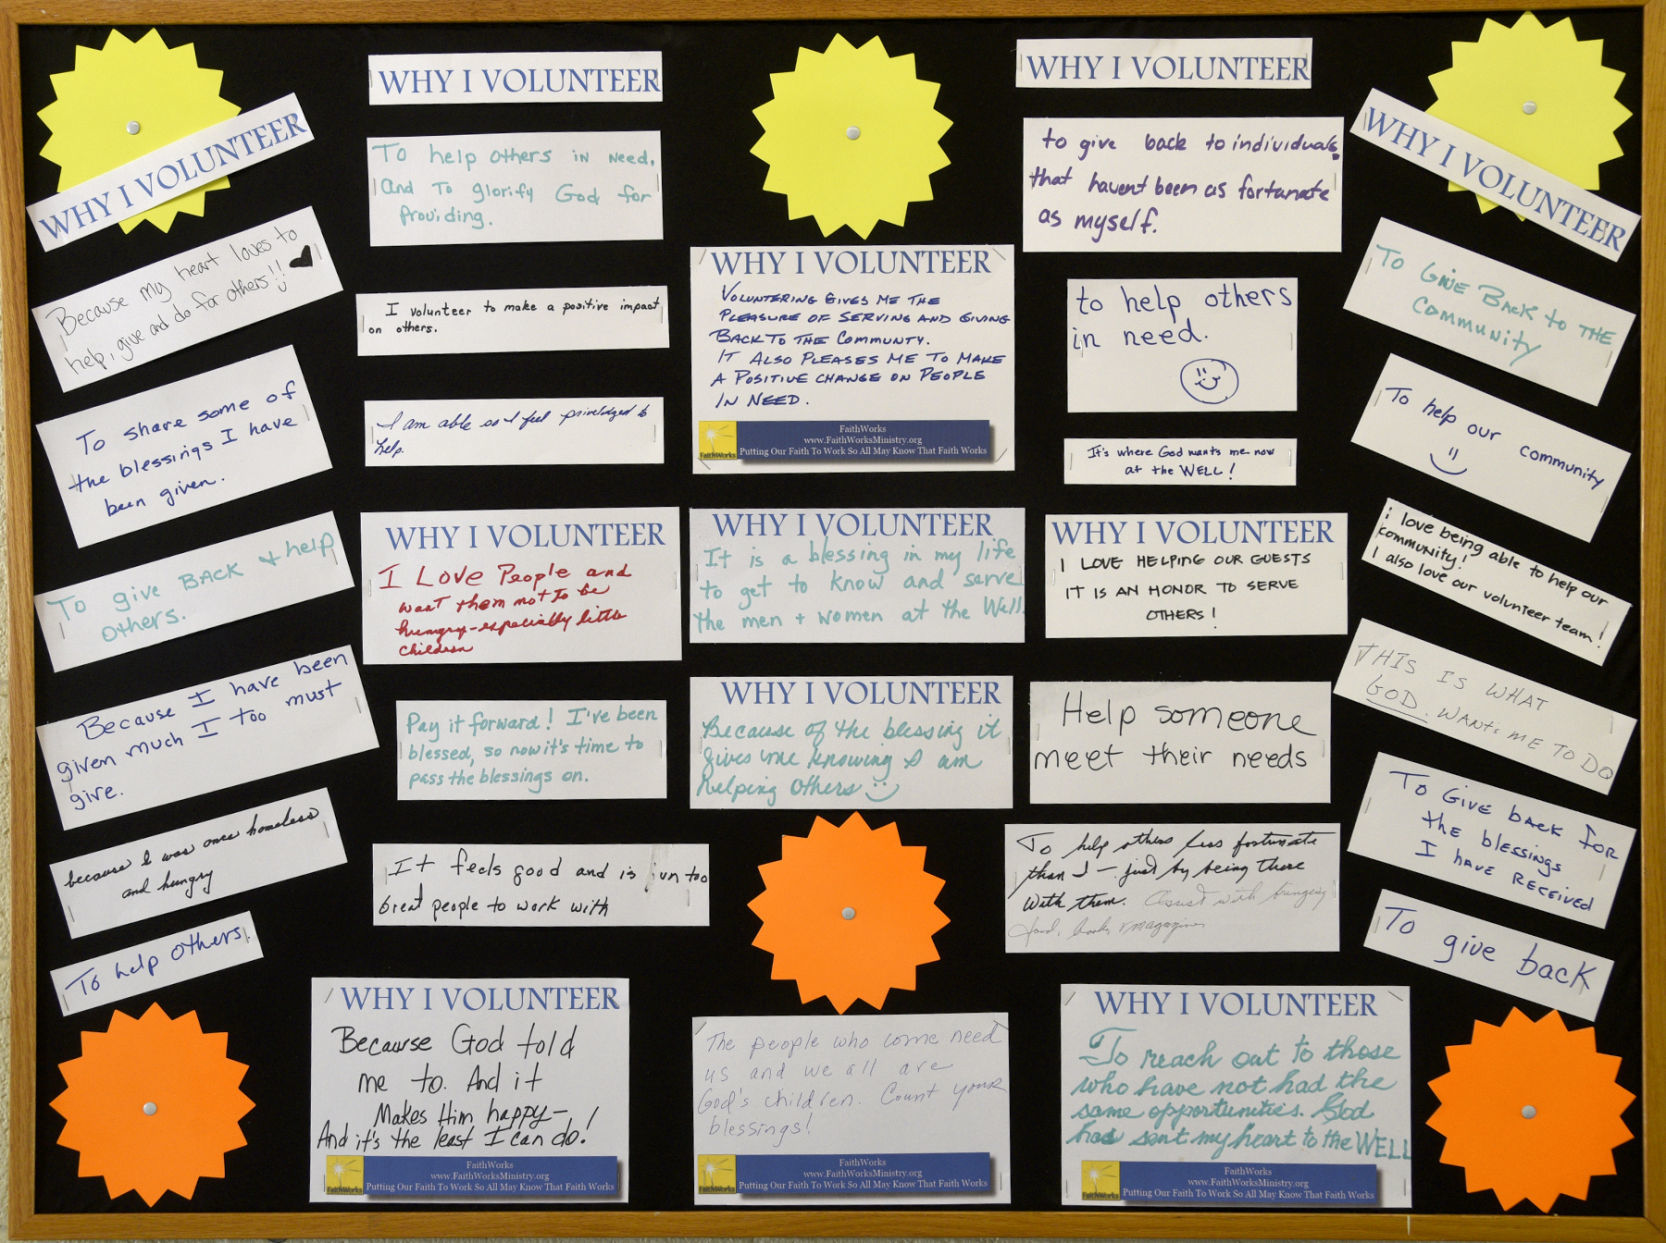 WHY I VOLUNTEER
Because my heart loves to
help, give and do for others!!
To share some of
the blessings I have
been given.
To give BACK & help
others.
Because I have been
given much I too must
give.
because I was once homeless
and hungry
To help others.
WHY I VOLUNTEER
To help others in need,
and To glorify God for
Providing.
I volunteer to make a positive impact
on others.
I am able so I feel priviledged to
help.
WHY I VOLUNTEER
I Love People and
want them not to be
hungry-especially little
children
Pay it forward! I've been
blessed, so now it's time to
pass the blessings on.
It feels good and is fun too
Great people to work with
WHY I VOLUNTEER
Because God told
me to. And it
Makes Him happy-
And it's the least I can do!
FaithWorks
www.FaithWorksMinistry.org
Putting Our Faith To Work So All May Know That Faith Works
FaithWorks
WHY I VOLUNTEER
VOLUNTERING GIVES ME THE
PLEASURE OF SERVING AND GIVING
BACK TO THE COMMUNTY.
IT ALSO PLEASES ME TO MAKE
A POSITIVE CHANGE ON PEOPLE
IN NEED.
FaithWorks
www.FaithWorksMinistry.org
Putting Our Faith To Work So All May Know That Faith Works
FaithWorks
WHY I VOLUNTEER
It is a blessing in my life
to get to know and serve
the men + women at the Well.
WHY I VOLUNTEER
Because of the blessing it
gives me knowing I am
helping others
The people who come need
us and we all are
God's children. Count your
blessings!
FaithWorks
www.FaithWorksMinistry.org
Putting Our Faith To Work So All May Know That Faith Works
FaithWorks
WHY I VOLUNTEER
to give back to individuals
that havent been as fortunate
as myself.
to help others
in need.
It's where God wants me now
at the WELL!
WHY I VOLUNTEER
I LOVE HELPING OUR GUESTS
IT IS AN HONOR TO SERVE
OTHERS!
Help someone
meet their needs
To help others less fortunate
than I - just by being there
with them. Assist with bringing
food, books & magazines
WHY I VOLUNTEER
To reach out to those
who have not had the
same opportunities. God
has sent my heart to the WELL
FaithWorks
www.FaithWorksMinistry.org
Putting Our Faith To Work So All May Know That Faith Works
FaithWorks
WHY I VOLUNTEER
To GIVE BACK to THE
Community
To help our community
i love being able to help our
community!
I also love our volunteer team!
THIS IS WHAT
GOD WANTS ME TO DO
To GIVE back FOR
the blessings
I have RECEIVED
To give back